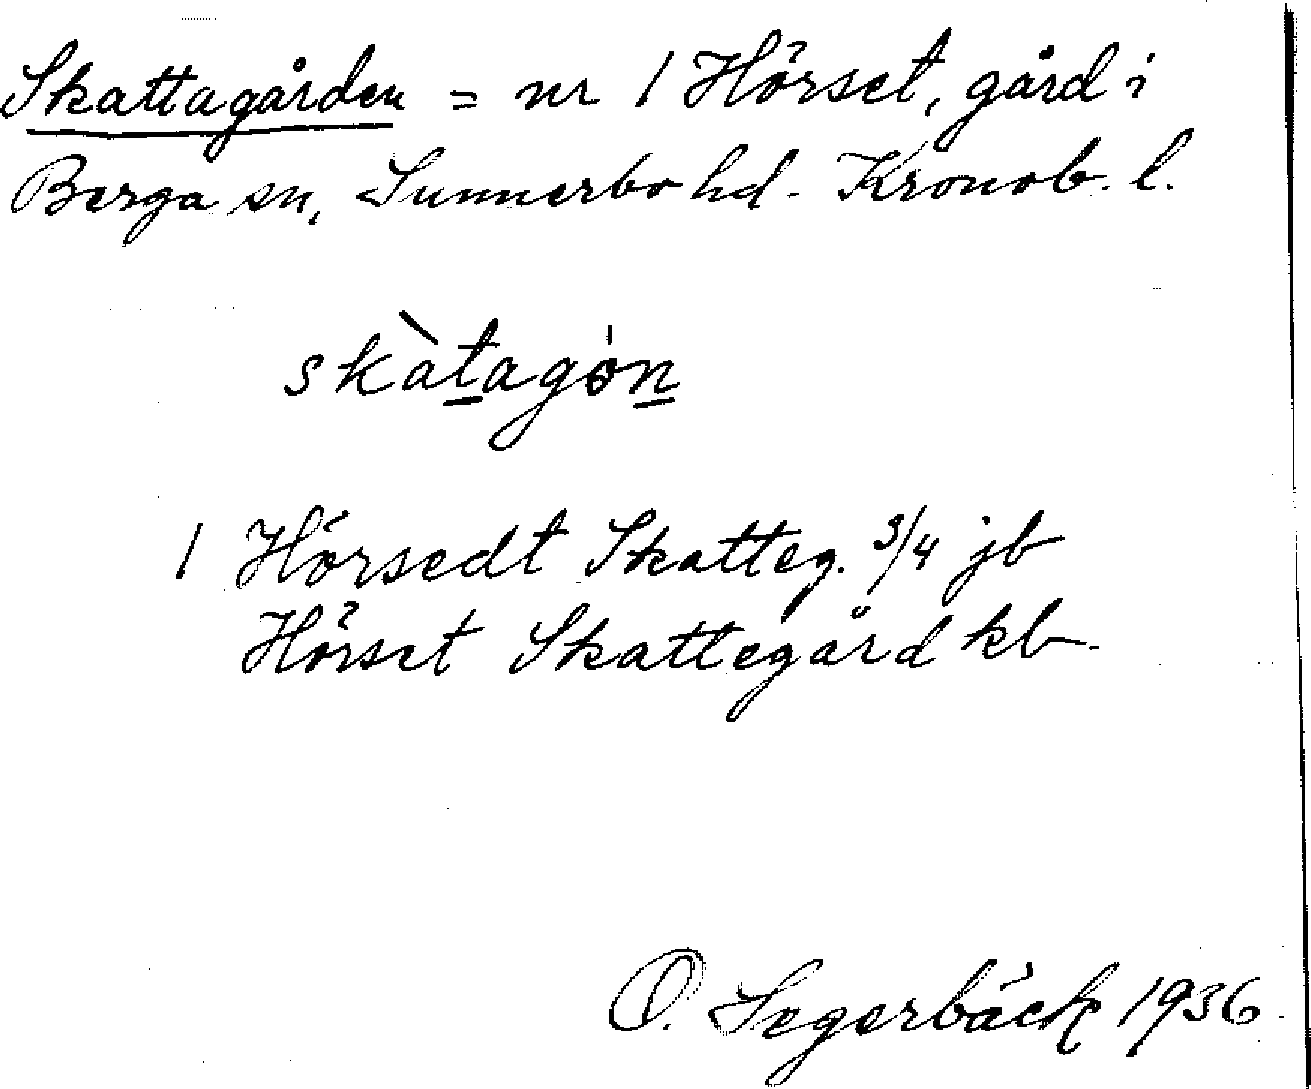 Skattagården = nr 1 Hörset, gård i
Berga sn, Sunnerbo hd. Kronob. l.
skàtagón
1 Hörsedt Skatteg. 3/4 jb
Hörset Skattegård kb.
O. Segerbäck 1936